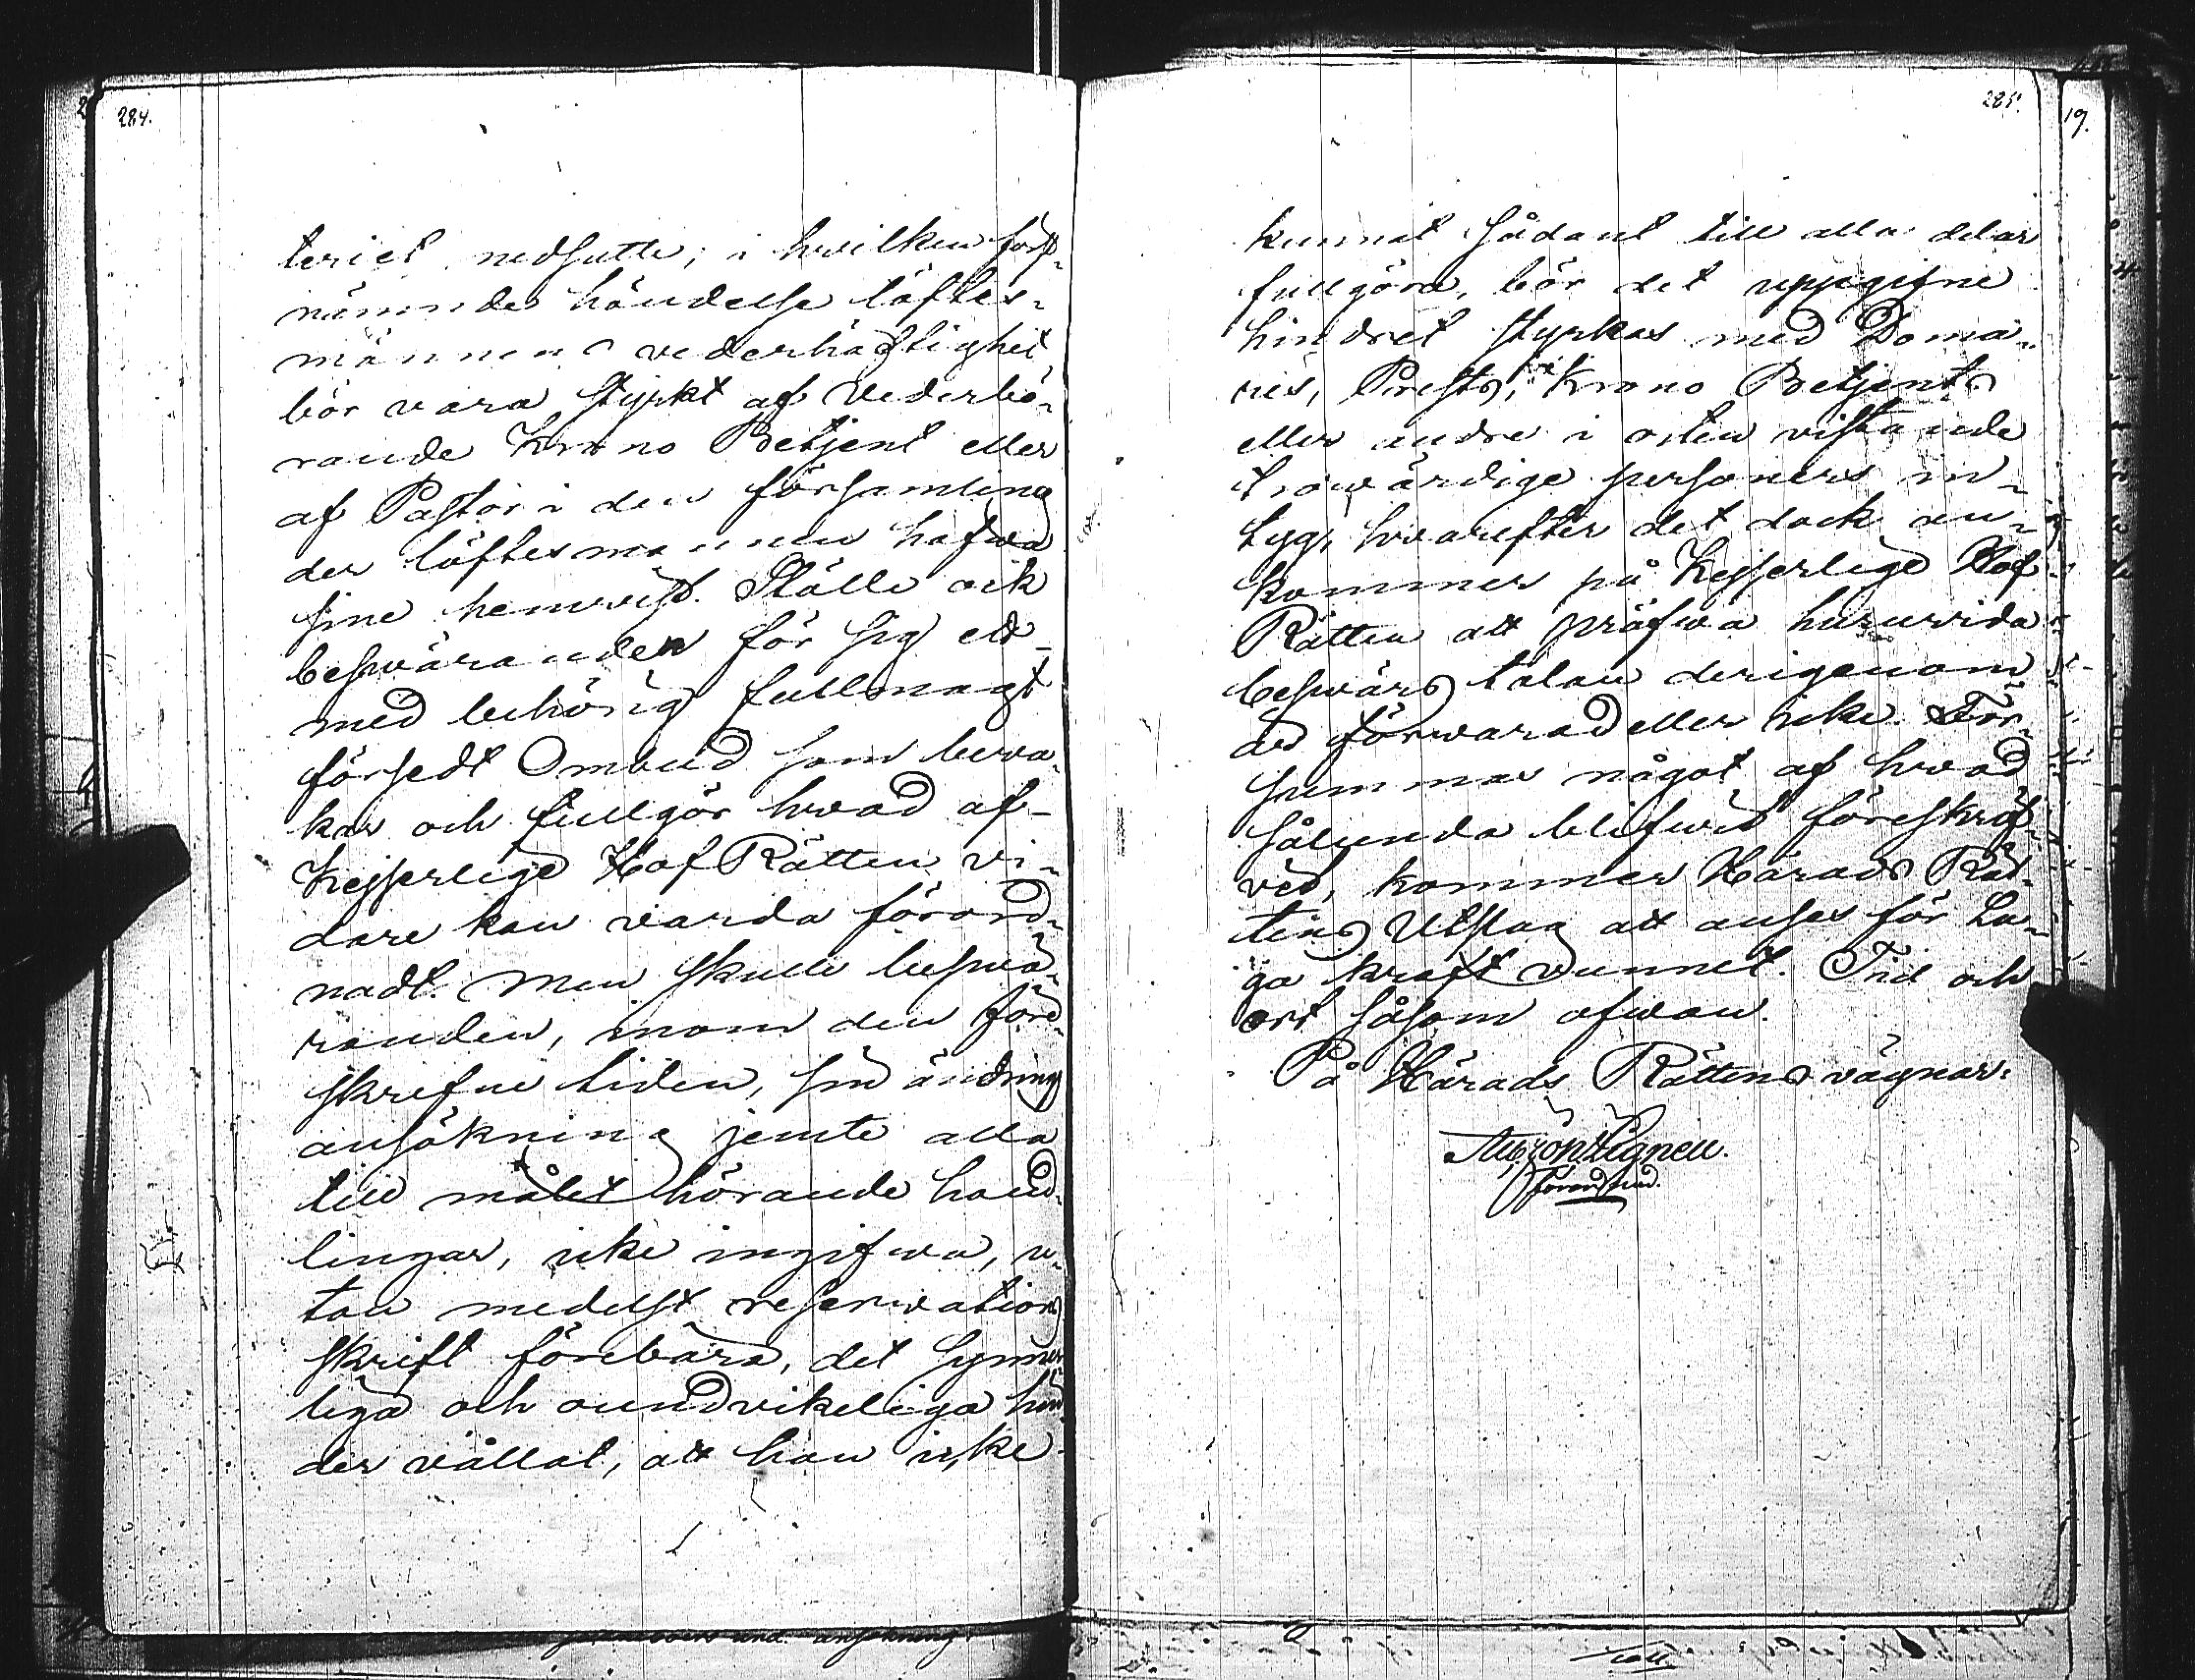 284.
teriet nedsutte; i hvilken först¬
nämnde händelse löftes¬
männens vederhäftighet
bör vara styrkt af Vederbö¬
rande Krono Betjent eller
af Pastor i den församling
der löftesmannen hafwa
sine hemvist. Ställe ock
besväranden för sig ett
med behörig fullmagt
försedt Ombud som beva¬
kar och fullgör hvad af
Kejserlige Hof Rätten vi¬
dare kan varda förord¬
nadt. Men skulle besvä¬
randen, inom den före¬
skrefne tiden, sin ändrings
ansökning jemte alla
till målet hörande hand¬
lingar, icke ingifwa, u¬
tan medelst reservations
skrift förebära, det synner
liga och oundvikeliga hin¬
der vållat, att han icke
285.
kunnat sådant till alla delar
fullgöra, bör det uppgifne
hindret styrkas med Doma¬
res, Prests, Krono Betjents
eller andre i orten vistande
trowärdige personers in¬
tyg, hvarefter det dock an¬
kommer på Kejserlige Hof
Rätten att pröfwa huruvida
besvärs talan derigenom
är förwarad eller icke. För¬
summas något af hvad
sålunda blifwit föreskrif¬
vet, kommer Härads Rät¬
tens Utslag att anses för La¬
ga kraft vunnet. Tid och
ort såsom ofwan.
På Härads Rättens vägnar:
19.